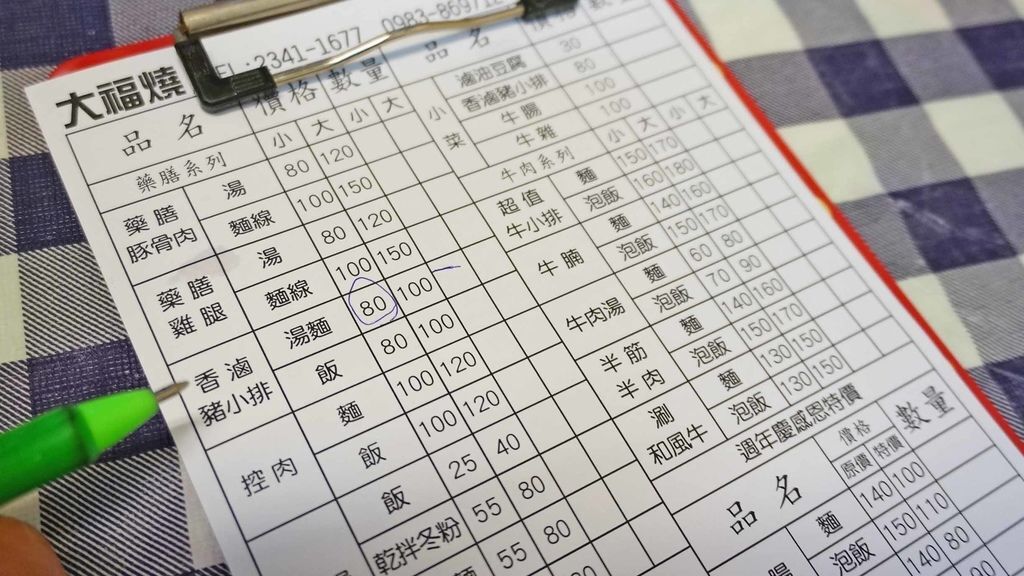 大福燒
TEL:2341-1677 0983-8697
品名 價格 數量
小 大 小 大
藥膳系列
藥膳豚骨肉 湯 80 120
麵線 100 150
藥膳雞腿 湯 80 120
麵線 100 150
香滷豬小排 湯麵 80 100
飯 80 100
控肉 麵 100 120
飯 100 120
飯 25 40
乾拌冬粉 55 80
麵 55 80
品名 價格 數量
小菜 滷油豆腐 30
香滷豬小排 80
牛腸 100
牛雜 100
牛肉系列 小 大 小 大
超值牛小排 麵 150 170
泡飯 160 180
牛腩 麵 140 160
泡飯 150 170
牛肉湯 麵 60 80
泡飯 70 90
半筋半肉 麵 140 160
泡飯 150 170
涮和風牛 麵 130 150
泡飯 130 150
週年慶感恩特價
品名 價格 數量
原價 特價
麵 140 100
泡飯 150 110
腸 140 80